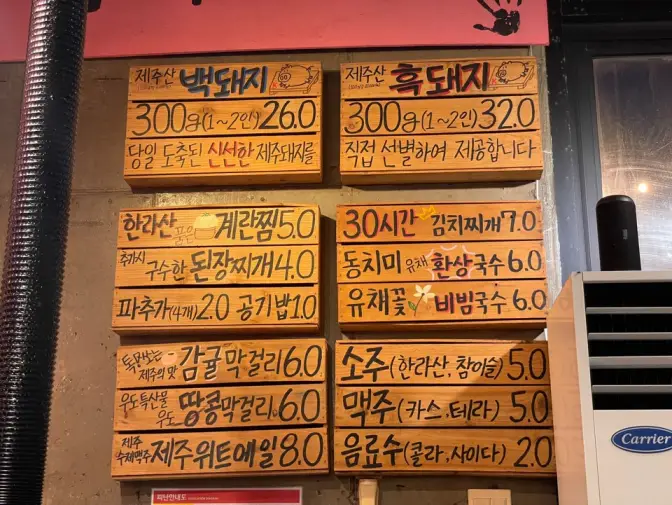 제주산 백돼지
300g(1~2인) 26.0
당일 도축된 신선한 제주돼지를
제주산 흑돼지
300g(1~2인) 32.0
직접 선별하여 제공합니다
한라산 품은 계란찜 5.0
추가시 구수한 된장찌개 4.0
파추가(4개) 2.0 공기밥 1.0
30시간 김치찌개 7.0
동치미 유채 환상국수 6.0
유채꽃 비빔국수 6.0
톡쏘는 제주의 맛 감귤막걸리 6.0
우도특산물 우도 땅콩막걸리 6.0
제주 수제맥주 제주위트에일 8.0
소주(한라산.참이슬) 5.0
맥주(카스.테라) 5.0
음료수(콜라.사이다) 2.0
Carrier
피난안내도